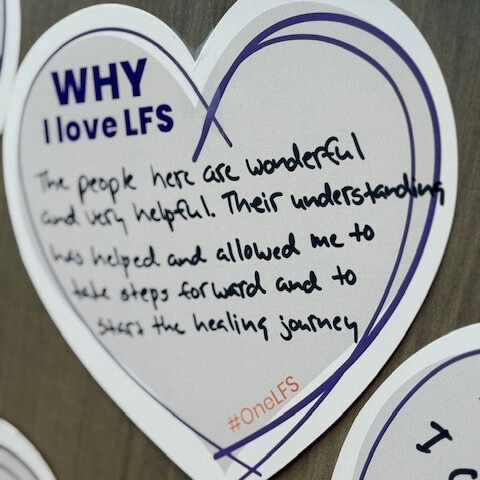 WHY
I love LFS
The people here are wonderful
and very helpful. Their understanding
has helped and allowed me to
take steps forward and to
start the healing journey
#OneLFS
I